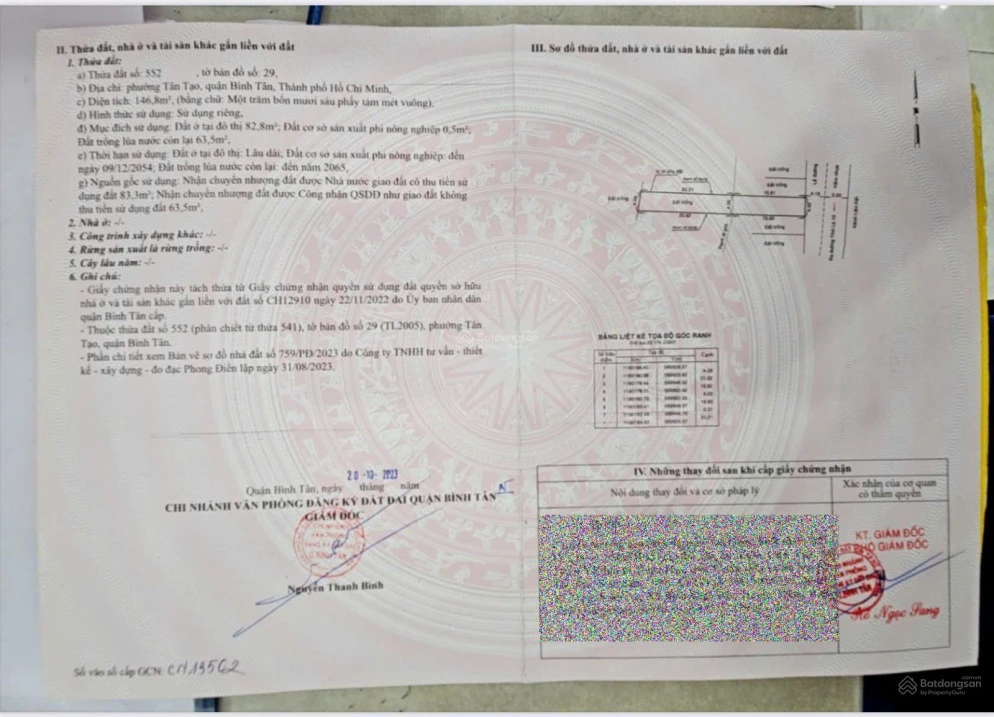 II. Thửa đất, nhà ở và tài sản khác gắn liền với đất
1. Thửa đất:
a) Thửa đất số: 552 , tờ bản đồ số: 29,
b) Địa chỉ: phường Tân Tạo, quận Bình Tân, Thành phố Hồ Chí Minh,
c) Diện tích: 146,8m², (bằng chữ: Một trăm bốn mươi sáu phẩy tám mét vuông),
d) Hình thức sử dụng: Sử dụng riêng,
đ) Mục đích sử dụng: Đất ở tại đô thị 82,8m²; Đất cơ sở sản xuất phi nông nghiệp 0,5m²;
Đất trồng lúa nước còn lại 63,5m²,
e) Thời hạn sử dụng: Đất ở tại đô thị: Lâu dài; Đất cơ sở sản xuất phi nông nghiệp: đến
ngày 09/12/2054; Đất trồng lúa nước còn lại: đến năm 2065,
g) Nguồn gốc sử dụng: Nhận chuyển nhượng đất được Nhà nước giao đất có thu tiền sử
dụng đất 83,3m²; Nhận chuyển nhượng đất được Công nhận QSDĐ như giao đất không
thu tiền sử dụng đất 63,5m²,
2. Nhà ở: -/-
3. Công trình xây dựng khác: -/-
4. Rừng sản xuất là rừng trồng: -/-
5. Cây lâu năm: -/-
6. Ghi chú:
- Giấy chứng nhận này tách thửa từ Giấy chứng nhận quyền sử dụng đất quyền sở hữu
nhà ở và tài sản khác gắn liền với đất số CH12910 ngày 22/11/2022 do Ủy ban nhân dân
quận Bình Tân cấp.
- Thuộc thửa đất số 552 (phân chiết từ thửa 541), tờ bản đồ số 29 (TL2005), phường Tân
Tạo, quận Bình Tân.
- Phần chi tiết xem Bản vẽ sơ đồ nhà đất số 759/PĐ/2023 do Công ty TNHH tư vấn - thiết
kế - xây dựng - đo đạc Phong Điền lập ngày 31/08/2023.
20 -10- 2023
Quận Bình Tân, ngày tháng năm
CHI NHÁNH VĂN PHÒNG ĐĂNG KÝ ĐẤT ĐAI QUẬN BÌNH TÂN
GIÁM ĐỐC
Nguyễn Thanh Bình
Số vào sổ cấp GCN: CH13562
III. Sơ đồ thửa đất, nhà ở và tài sản khác gắn liền với đất
Đất trống
Đất trống
Đất trống
Đất trống
Đất trống
Lề đường
BẢNG LIỆT KÊ TỌA ĐỘ GÓC RANH
Cạnh
IV. Những thay đổi sau khi cấp giấy chứng nhận
Nội dung thay đổi và cơ sở pháp lý
Xác nhận của cơ quan
có thẩm quyền
KT. GIÁM ĐỐC
PHÓ GIÁM ĐỐC
Ngọc Sang
Batdongsan
Batdongsan
by PropertyGuru